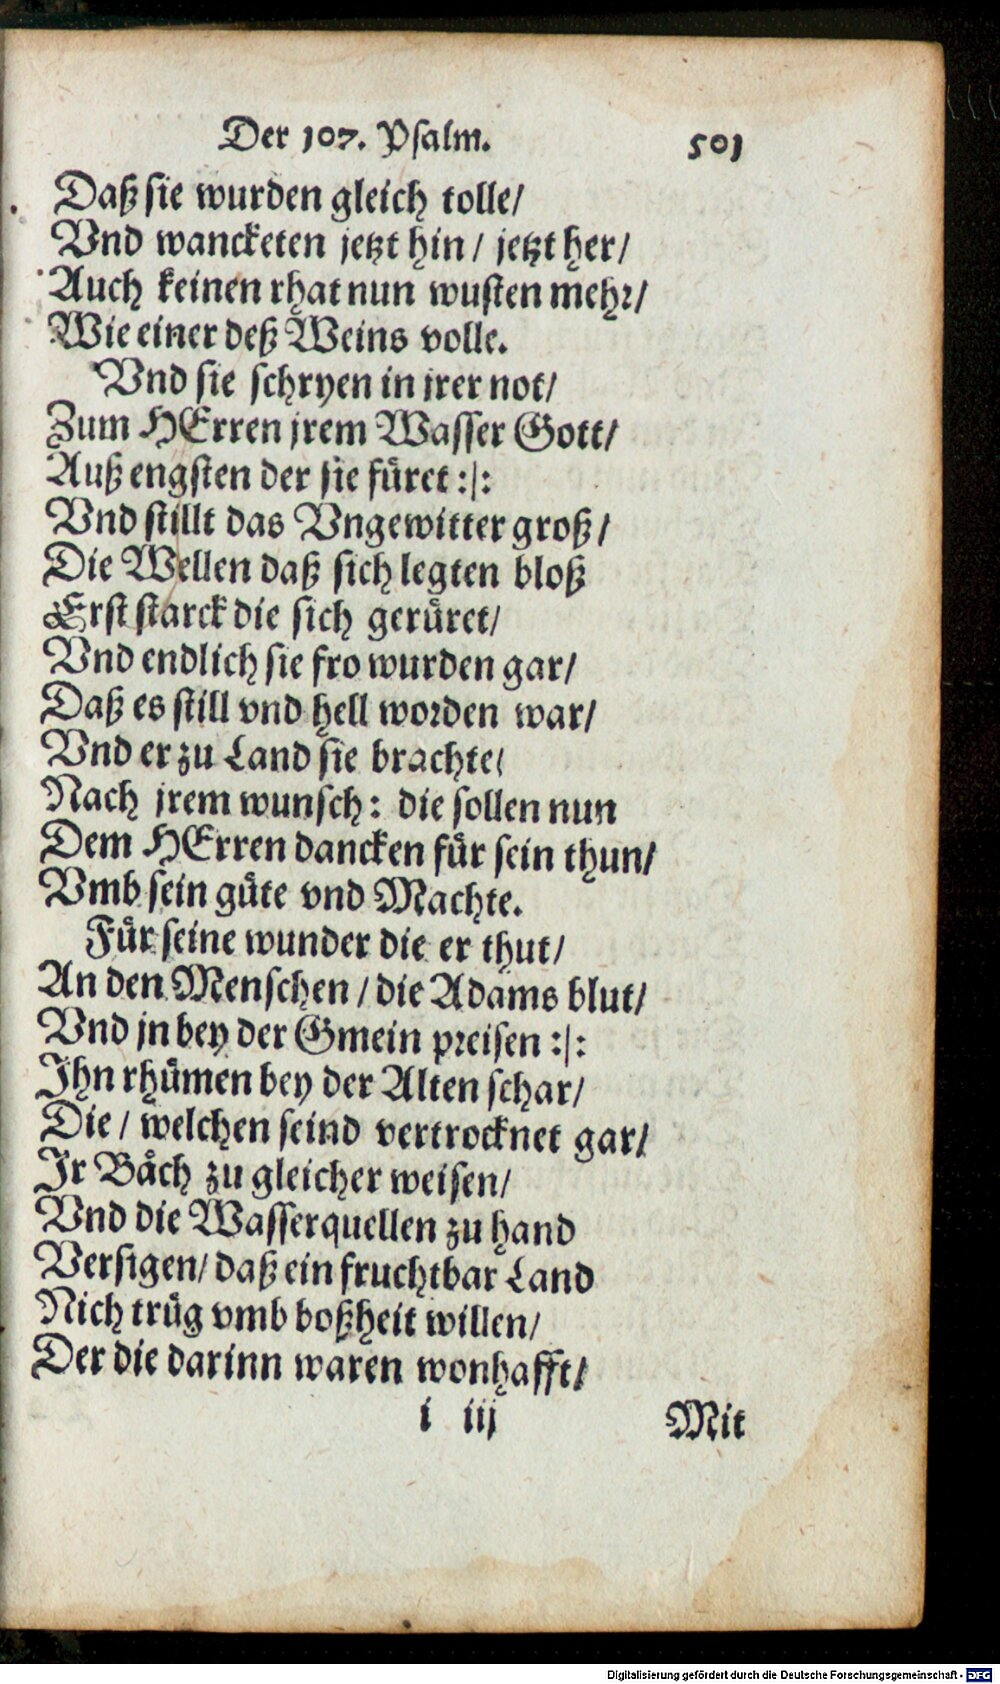 Der 107. Psalm. 501
Daß sie wurden gleich tolle/
Vnd wancketen jetzt hin/ jetzt her/
Auch keinen rhat nun wusten mehr/
Wie einer deß Weins volle.
Vnd sie schryen in jrer not/
Zum HErren jrem Wasser Gott/
Auß engsten der sie füret :/:
Vnd stillt das Vngewitter groß/
Die Wellen daß sich legten bloß
Erst starck die sich gerüret/
Vnd endlich sie fro wurden gar/
Daß es still vnd hell worden war/
Vnd er zu Land sie brachte/
Nach jrem wunsch: die sollen nun
Dem HErren dancken für sein thun/
Vmb sein güte vnd Machte.
Für seine wunder die er thut/
An den Menschen / die Adams blut/
Vnd jn bey der Gmein preisen :/:
Ihn rhümen bey der Alten schar/
Die / welchen seind vertrocknet gar/
Ir Bäch zu gleicher weisen/
Vnd die Wasserquellen zu hand
Versigen/ daß ein fruchtbar Land
Nich trüg vmb boßheit willen/
Der die darinn waren wonhafft/
i iij Mit
Digitalisierung gefördert durch die Deutsche Forschungsgemeinschaft - DFG